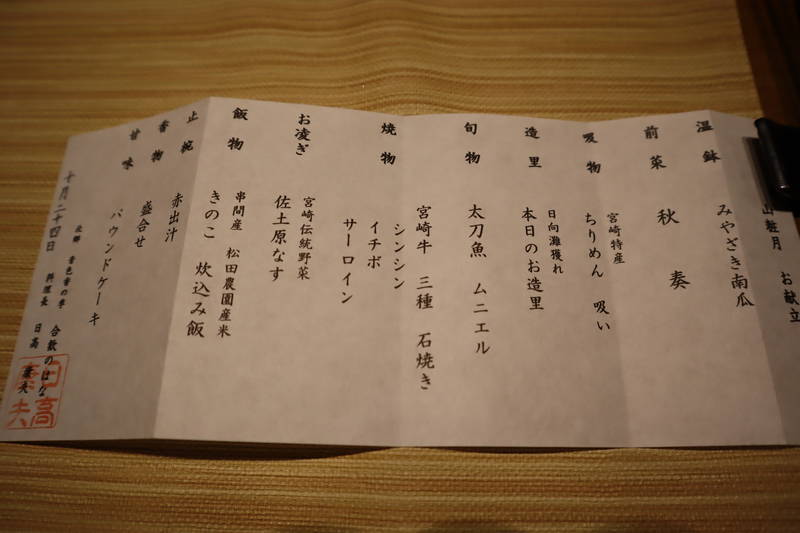 山粧月　お献立
温鉢
みやざき南瓜
前菜
秋　奏
吸物
宮崎特産
ちりめん　吸い
造里
日向灘獲れ
本日のお造里
旬物
太刀魚　ムニエル
焼物
宮崎牛　三種　石焼き
シンシン
イチボ
サーロイン
お凌ぎ
宮崎伝統野菜
佐土原なす
飯物
串間産　松田農園産米
きのこ　炊込み飯
止椀
赤出汁
香物
盛合せ
甘味
パウンドケーキ
十月二十四日
音色香の季　合歓のはな
料理長　日高
日高